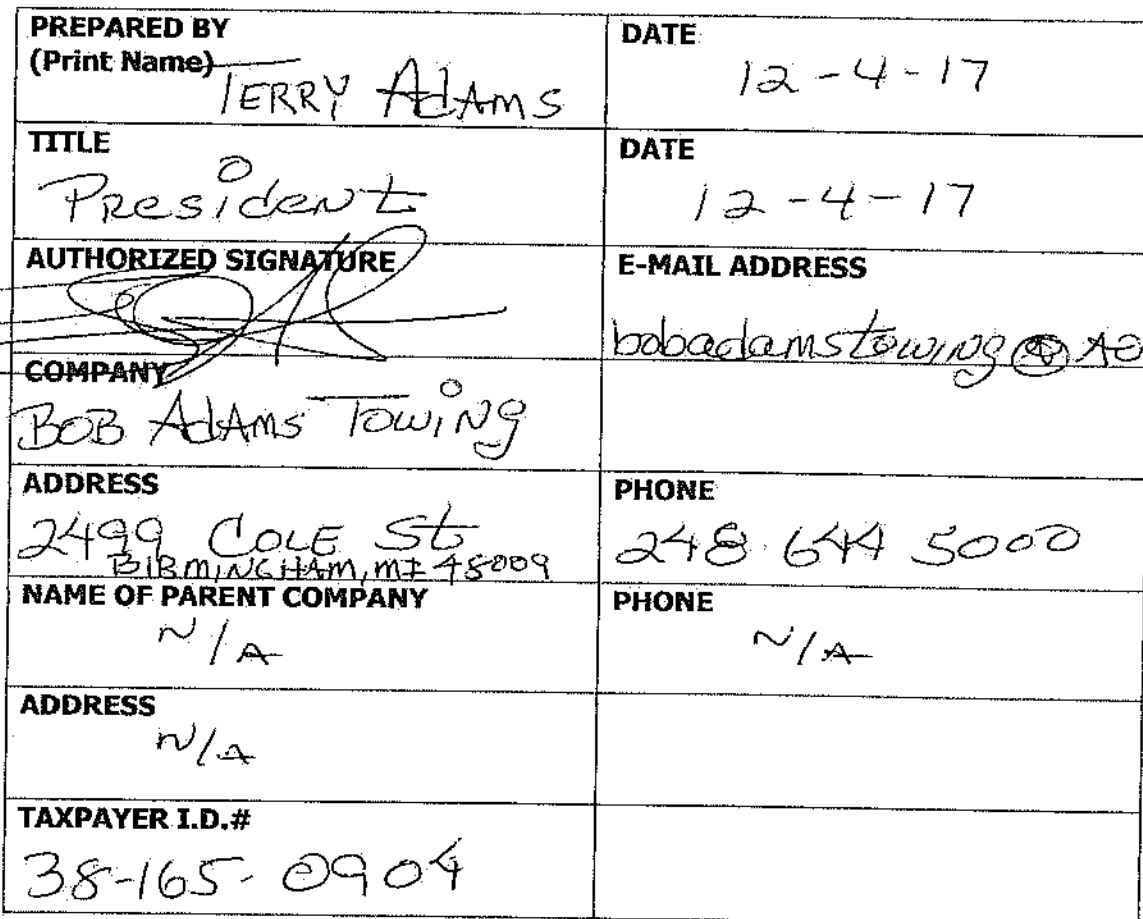 PREPARED BY
(Print Name) TERRY AdAms
DATE
12-4-17
TITLE
President
DATE
12-4-17
AUTHORIZED SIGNATURE
E-MAIL ADDRESS
bobadamstowing@
COMPANY
BOB AdAms Towing
ADDRESS
2499 COLE St
BIRMINGHAM, MI 48009
PHONE
248 644 5000
NAME OF PARENT COMPANY
N/A
PHONE
N/A
ADDRESS
N/A
TAXPAYER I.D.#
38-165-0904